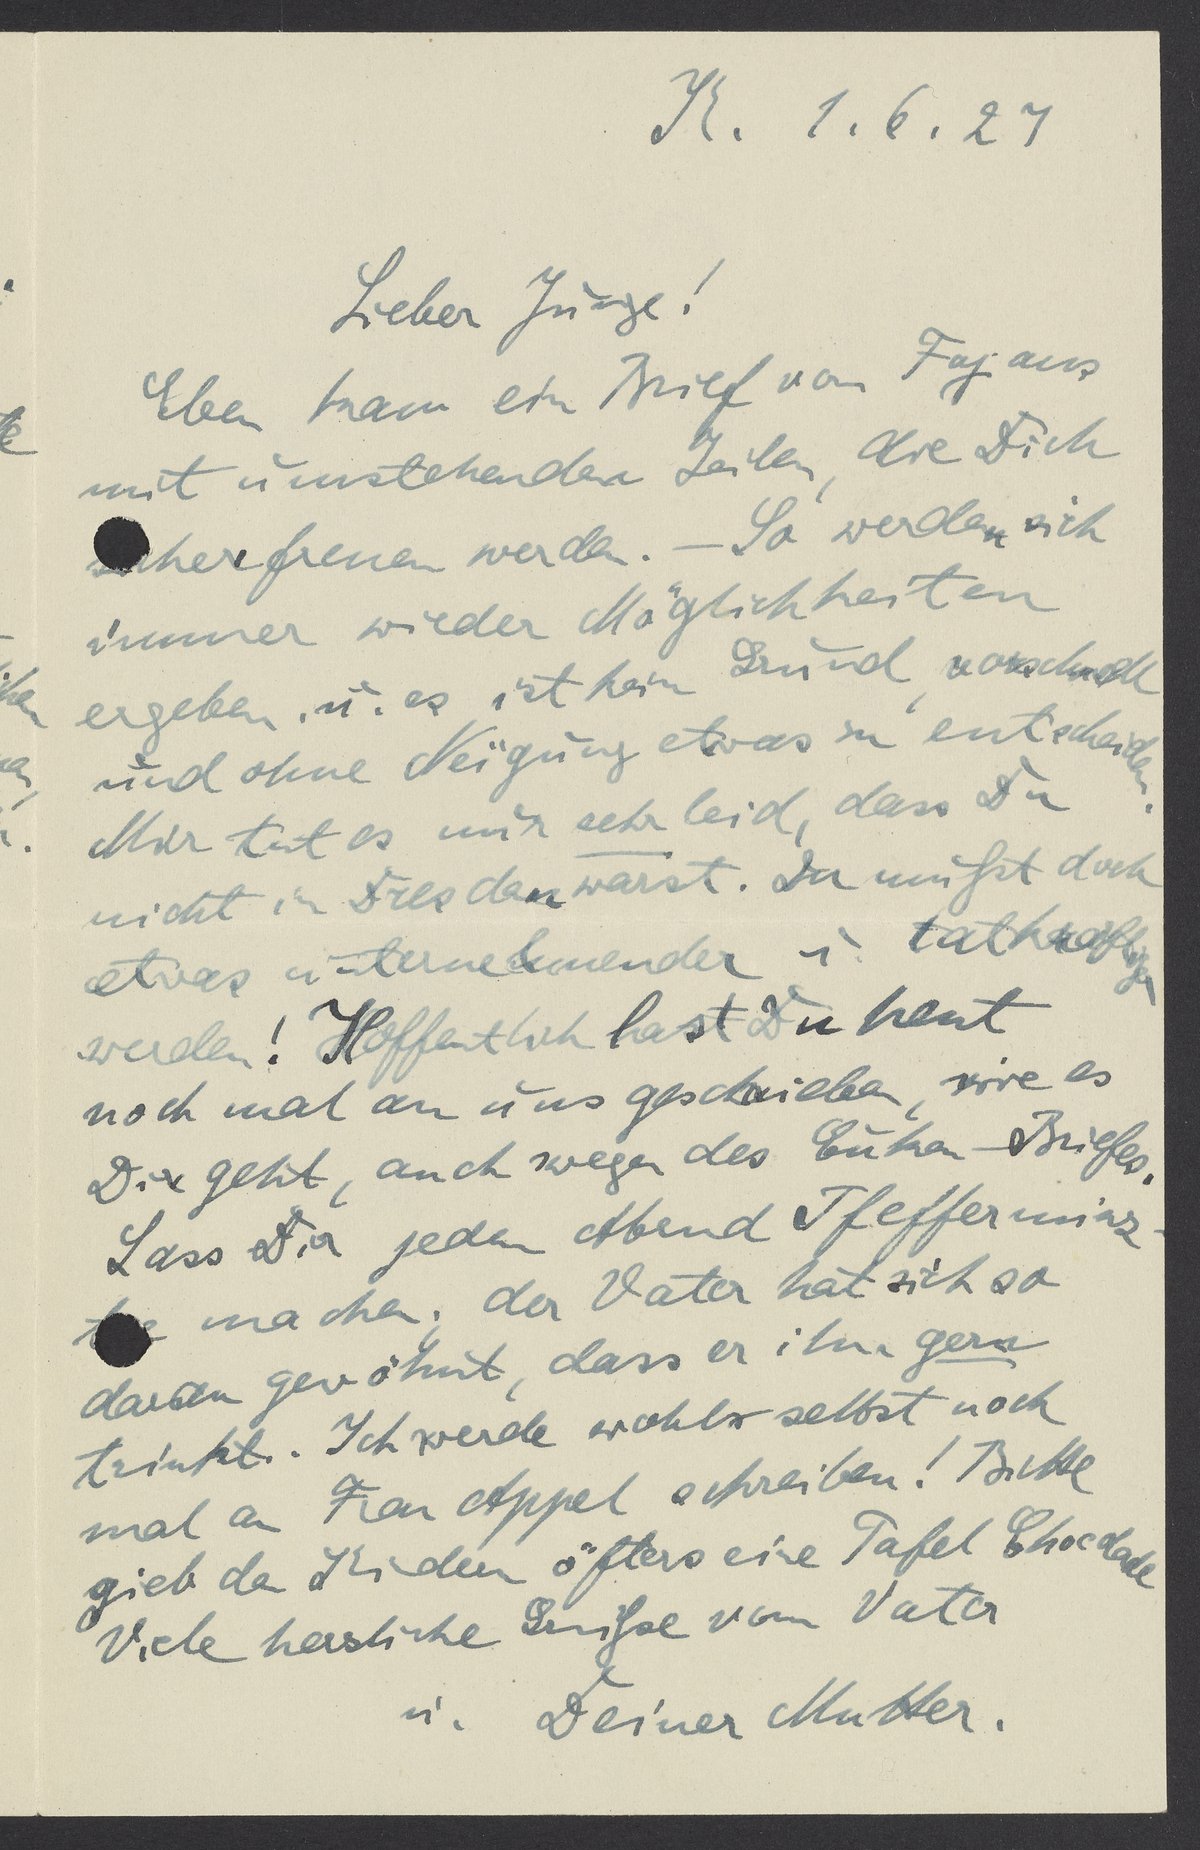 K. 1.6.27
Lieber Junge!
Eben kam ein Brief von Fajans
mit umstehenden Zeilen, die Dich
sicher freuen werden. – So werden sich
immer wieder Möglichkeiten
ergeben, u. es ist kein Grund, vorschnell
und ohne Neigung etwas zu entscheiden.
Mir tut es nur sehr leid, dass Du
nicht in Dresden warst. Du mußt doch
etwas unternehmender u. tatkräftiger
werden! Hoffentlich hast Du heut
noch mal an uns geschrieben, wie es
Dir geht, auch wegen des Eucken-Briefes.
Lass Dir jeden Abend Pfefferminz-
tee machen; der Vater hat sich so
daran gewöhnt, dass er ihn gern
trinkt. Ich werde wohl selbst noch
mal an Frau Appel schreiben! Bitte
gieb den Kindern öfters eine Tafel Chocolade
Viele herzliche Grüße vom Vater
u. Deiner Mutter.